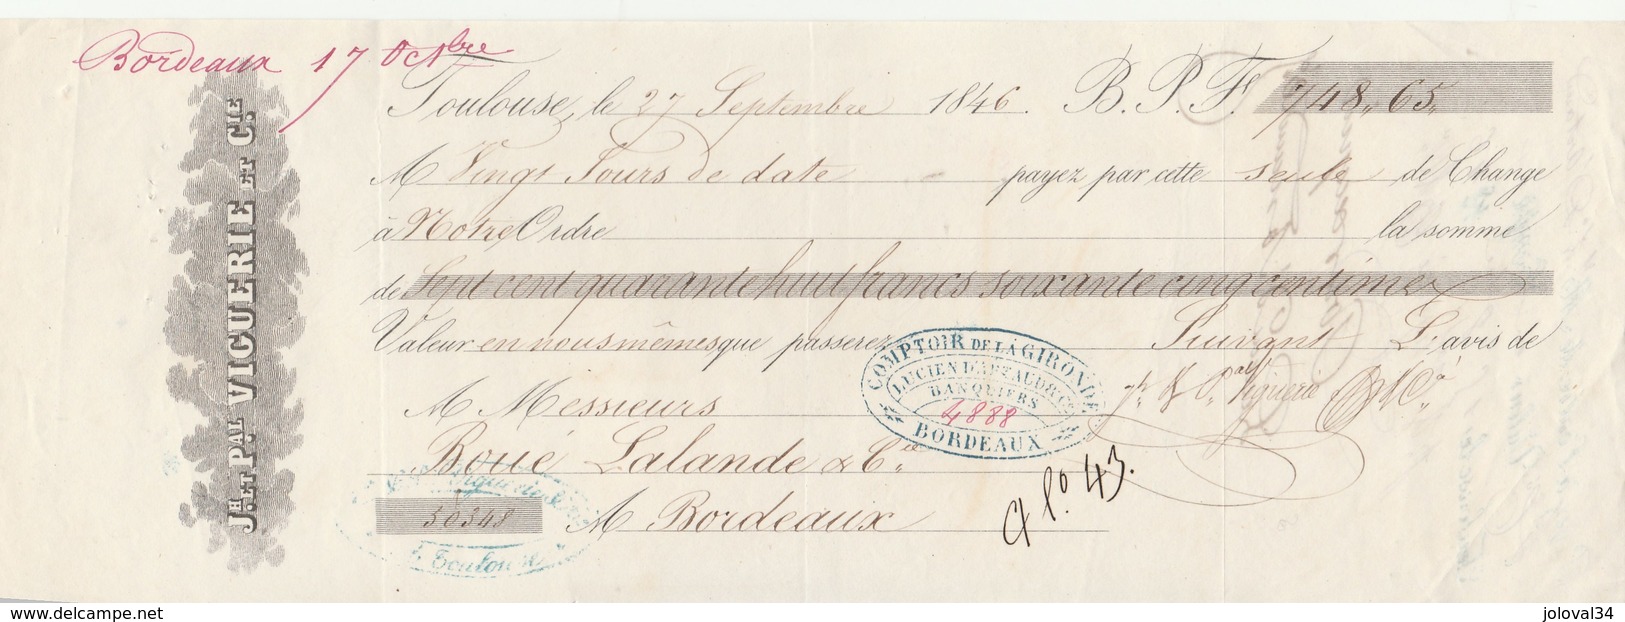 Bordeaux 17 Octbre
Toulouse, le 27 Septembre 1846. B. P. Fs 748,, 65,,
A Vingt Jours de date payez par cette seule de Change
à Notre Ordre la somme
de Sept cent quarante huit francs soixante cinq centimes
Valeur en nous mêmes que passerez Suivant L'avis de
A Messieurs
Boué Lalande & Cie
A Bordeaux
30348
JH ET PAL VIGUERIE ET CIE
COMPTOIR DE LA GIRONDE
BANQUIERS
4888
BORDEAUX
Pal Viguerie
43.
Toulouse
www.delcampe.net
joloval34